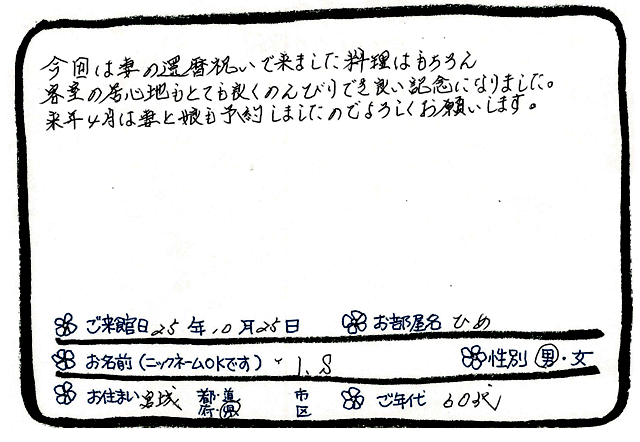 今回は妻の還暦祝いで来ました料理はもちろん
客室の居心地もとても良くのんびりでき良い記念になりました。
来年4月は妻と娘も予約しましたのでよろしくお願いします。
ご来館日 25 年 10 月 25 日 お部屋名 ひめ
お名前(ニックネームOKです) 1.8 性別 男・女
お住まい 宮城 都・道 府・県 市 区 ご年代 60代